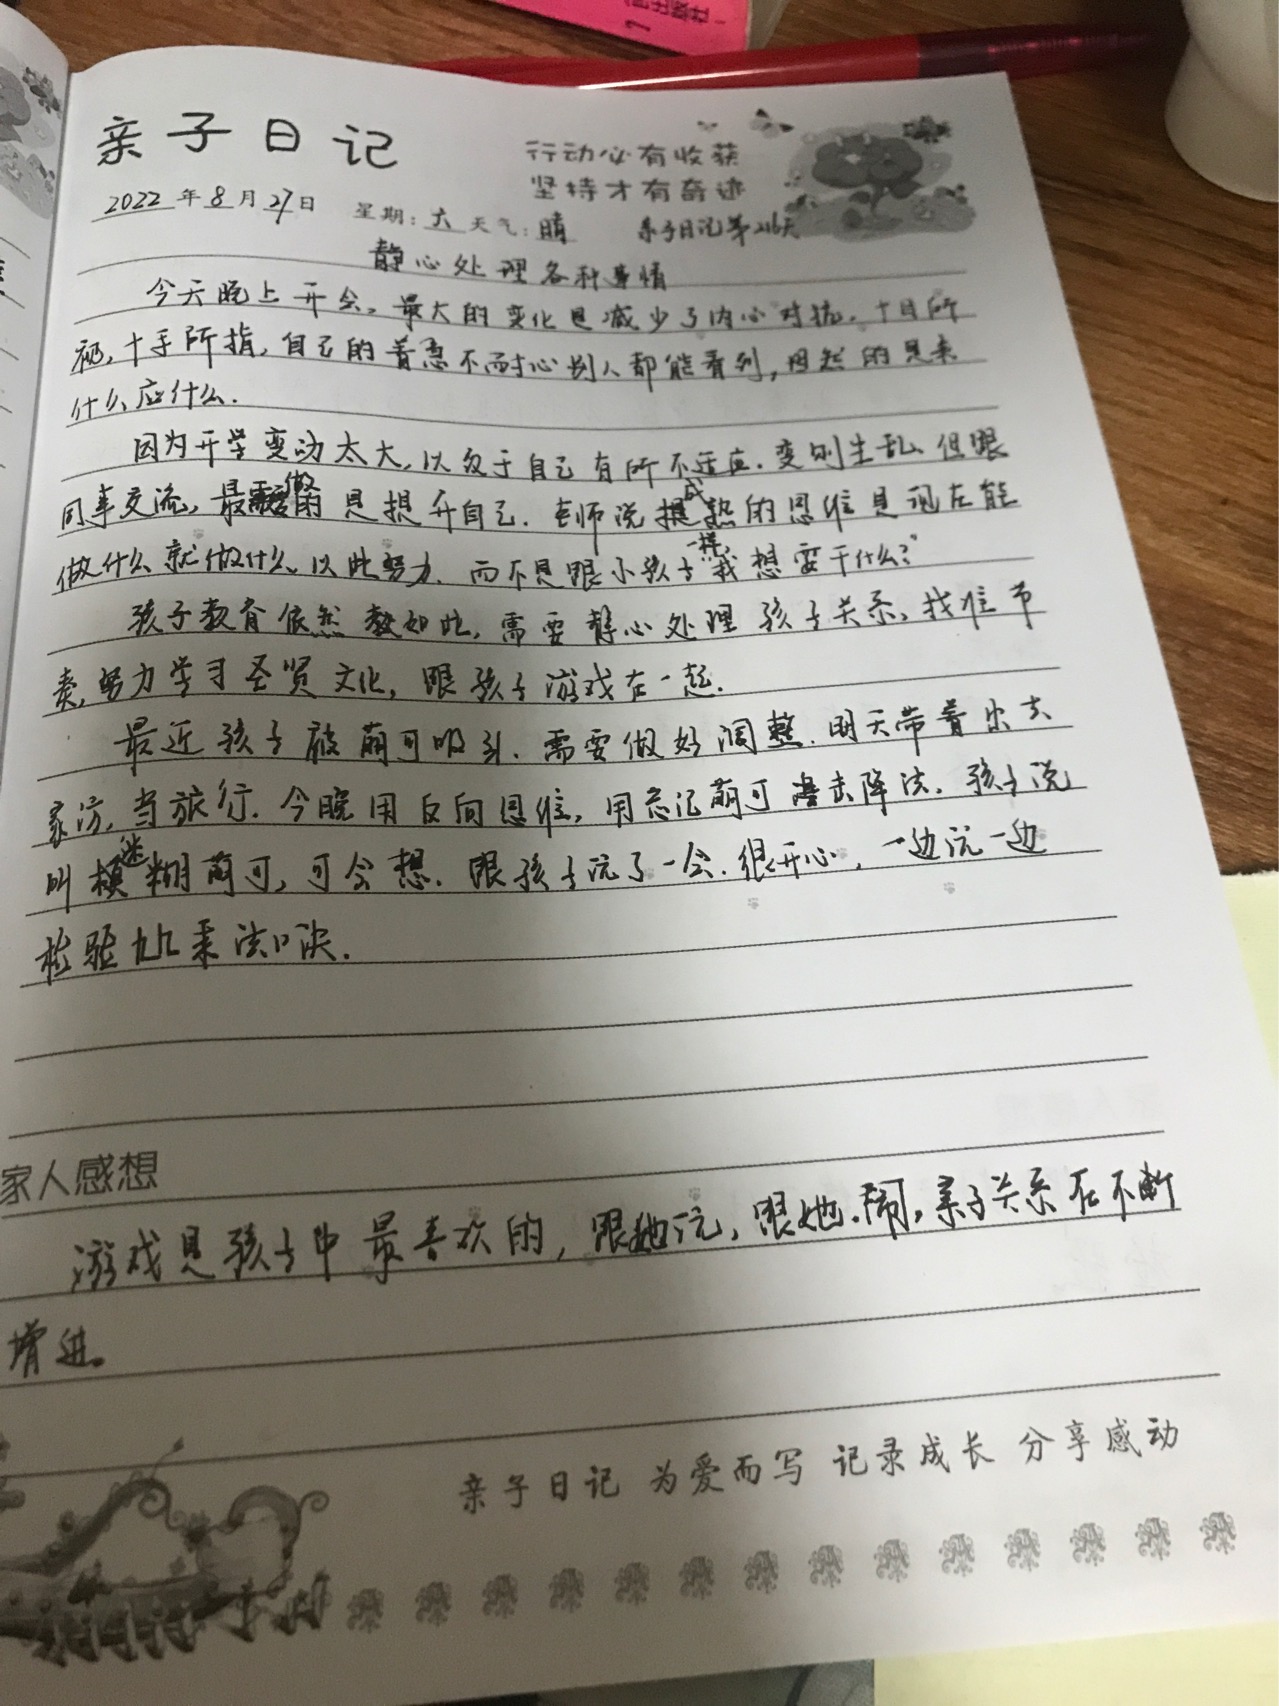 亲子日记
行动必有收获
坚持才有奇迹
2022年8月27日 星期:六 天气:晴 亲子日记第216天
静心处理各种事情
今天晚上开会,最大的变化是减少了内心对抗,十目所
视,十手所指,自己的着急不耐心别人都能看到,坦然的是来
什么应什么.
因为开学变动太大,以致于自己有所不适应.变则生乱,但跟
同事交流,最需要做的是提升自己.老师说成熟的思维是现在能
做什么就做什么,以此努力.而不是跟小孩子一样"我想要干什么?"
孩子教育依然如此,需要静心处理孩子关系,找准节
奏,努力学习圣贤文化,跟孩子游戏在一起.
最近孩子被萌可吸引.需要做好调整.明天带着出去
家访,当旅行.今晚用反向思维,用忘记萌可 降法.孩子说
叫迷糊萌可,可会想.跟孩子玩了一会.很开心,一边玩一边
检验九九乘法口诀.
家人感想
游戏是孩子中最喜欢的,跟她玩,跟她闹,亲子关系在不断
增进。
亲子日记 为爱而写 记录成长 分享感动